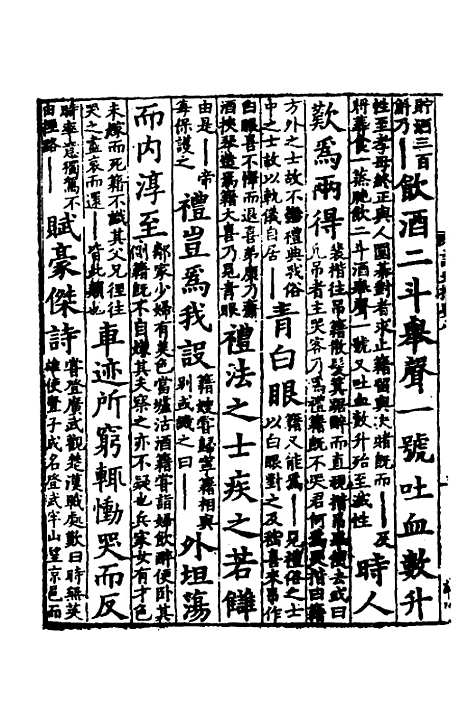 貯酒三百
斛乃——
飲酒二斗舉聲一號吐血數升
性至孝母終正與人圍棊對者求止籍留與決賭既而——及
將葬食一蒸肫飲二斗酒舉聲一號又吐血數升殆至滅性
時人
歎爲兩得
裴楷往吊籍散髮箕踞醉而直視楷吊畢去或曰
凡吊者主哭客乃爲禮籍既不哭君何爲哭楷曰籍
方外之士故不崇禮典我俗
中之士故以軌儀自居——
青白眼
籍又能爲——見禮俗之士
以白眼對之及嵇喜來吊作
白眼喜不懌而退喜弟康乃齎
酒挾琴造焉籍大喜乃見青眼
禮法之士疾之若讎
由是——帝
每保護之
禮豈爲我設
籍嫂嘗歸寧籍相與
別或譏之曰——
外坦蕩
而內淳至
鄰家少婦有美色當壚沽酒籍嘗詣婦飲醉便卧其
側籍既不自嫌其夫察之亦不疑也兵家女有才色
未嫁而死籍不識其父兄徑往
哭之盡哀而還——皆此類也
車迹所窮輒慟哭而反
時率意獨駕不
由徑路——
賦豪傑詩
嘗登廣武觀楚漢戰處歎曰時無英
雄使豎子成名登武牢山望京邑而